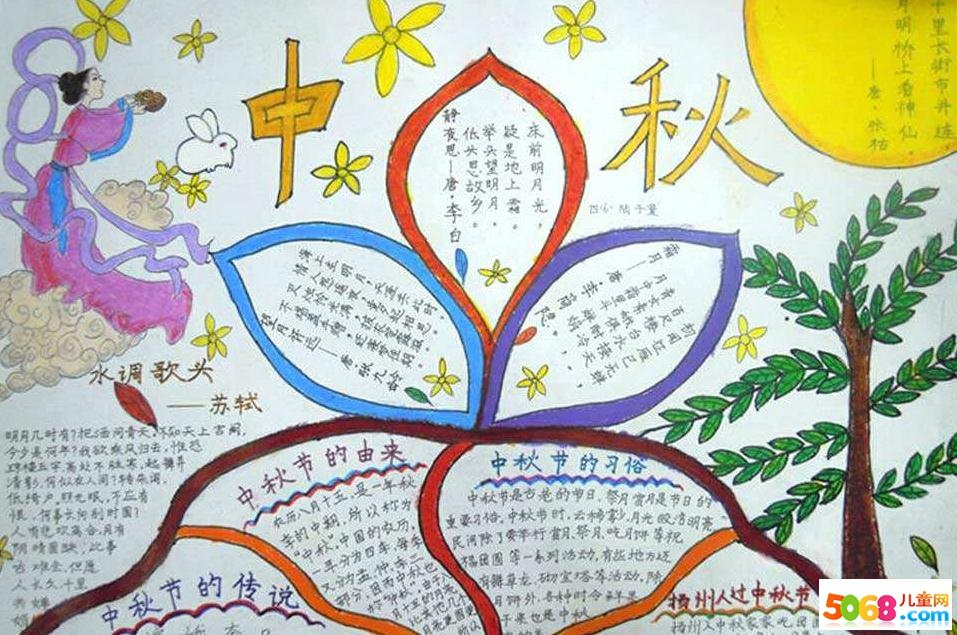 中秋
十里长街市井连，
月明桥上看神仙。
——唐·张祜
床前明月光，
疑是地上霜。
举头望明月，
低头思故乡。
静夜思——唐·李白
海上生明月，天涯共此时。
情人怨遥夜，竟夕起相思。
灭烛怜光满，披衣觉露滋。
不堪盈手赠，还寝梦佳期。
望月怀远——唐 张九龄
初闻征雁已无蝉，
百尺楼台水接天。
青女素娥俱耐冷，
月中霜里斗婵娟。
霜月——唐 李商隐
水调歌头
——苏轼
明月几时有？把酒问青天，不知天上宫阙，
今夕是何年？我欲乘风归去，惟恐
琼楼玉宇高处不胜寒，起舞弄
清影，何似在人间？转朱阁，
低绮户，照无眠，不应有
恨，何事长向别时圆？
人有悲欢离合，月有
阴晴圆缺，此事
古难全，但愿
人长久千里
共婵
中秋节的由来
农历八月十五，是一年秋
季的中期，所以称为
“中秋”，中国的农历，
一年分为四季，每季
又分为孟、仲、季三
部分，
中秋节的习俗
中秋节是古老的节日，祭月赏月是节日的
重要习俗。中秋节时，云稀雾少，月光皎洁明亮
民间除了要举行赏月、祭月、吃月饼等祝
福团圆等一系列活动，有些地方还
有舞草龙，砌宝塔等活动，除
月饼外，各种时令鲜果
中秋节的传说
扬州人过中秋节
5068儿童网
www.5068.com